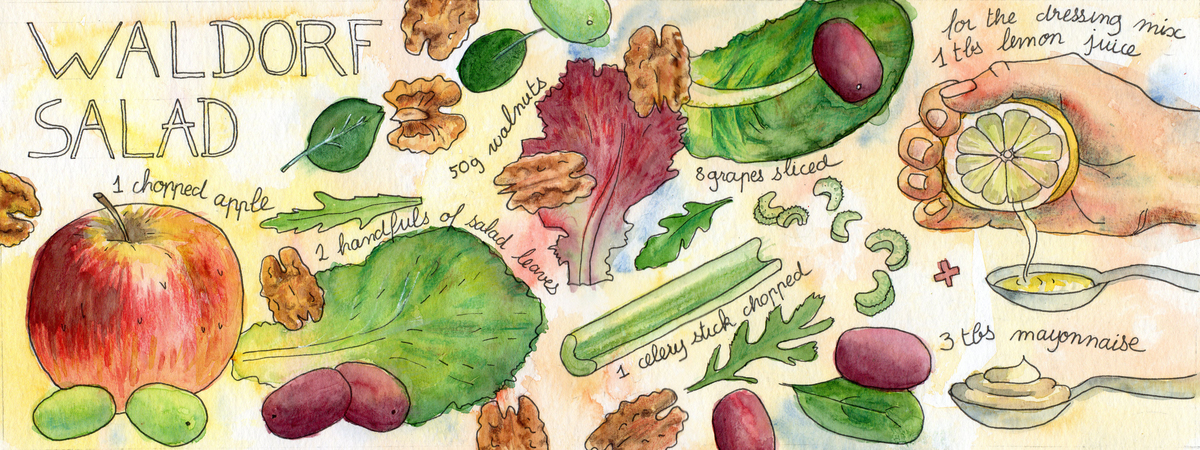 WALDORF
SALAD
1 chopped apple
2 handfuls of salad leaves
50g walnuts
8 grapes sliced
1 celery stick chopped
for the dressing mix
1 tbs lemon juice
+
3 tbs mayonnaise